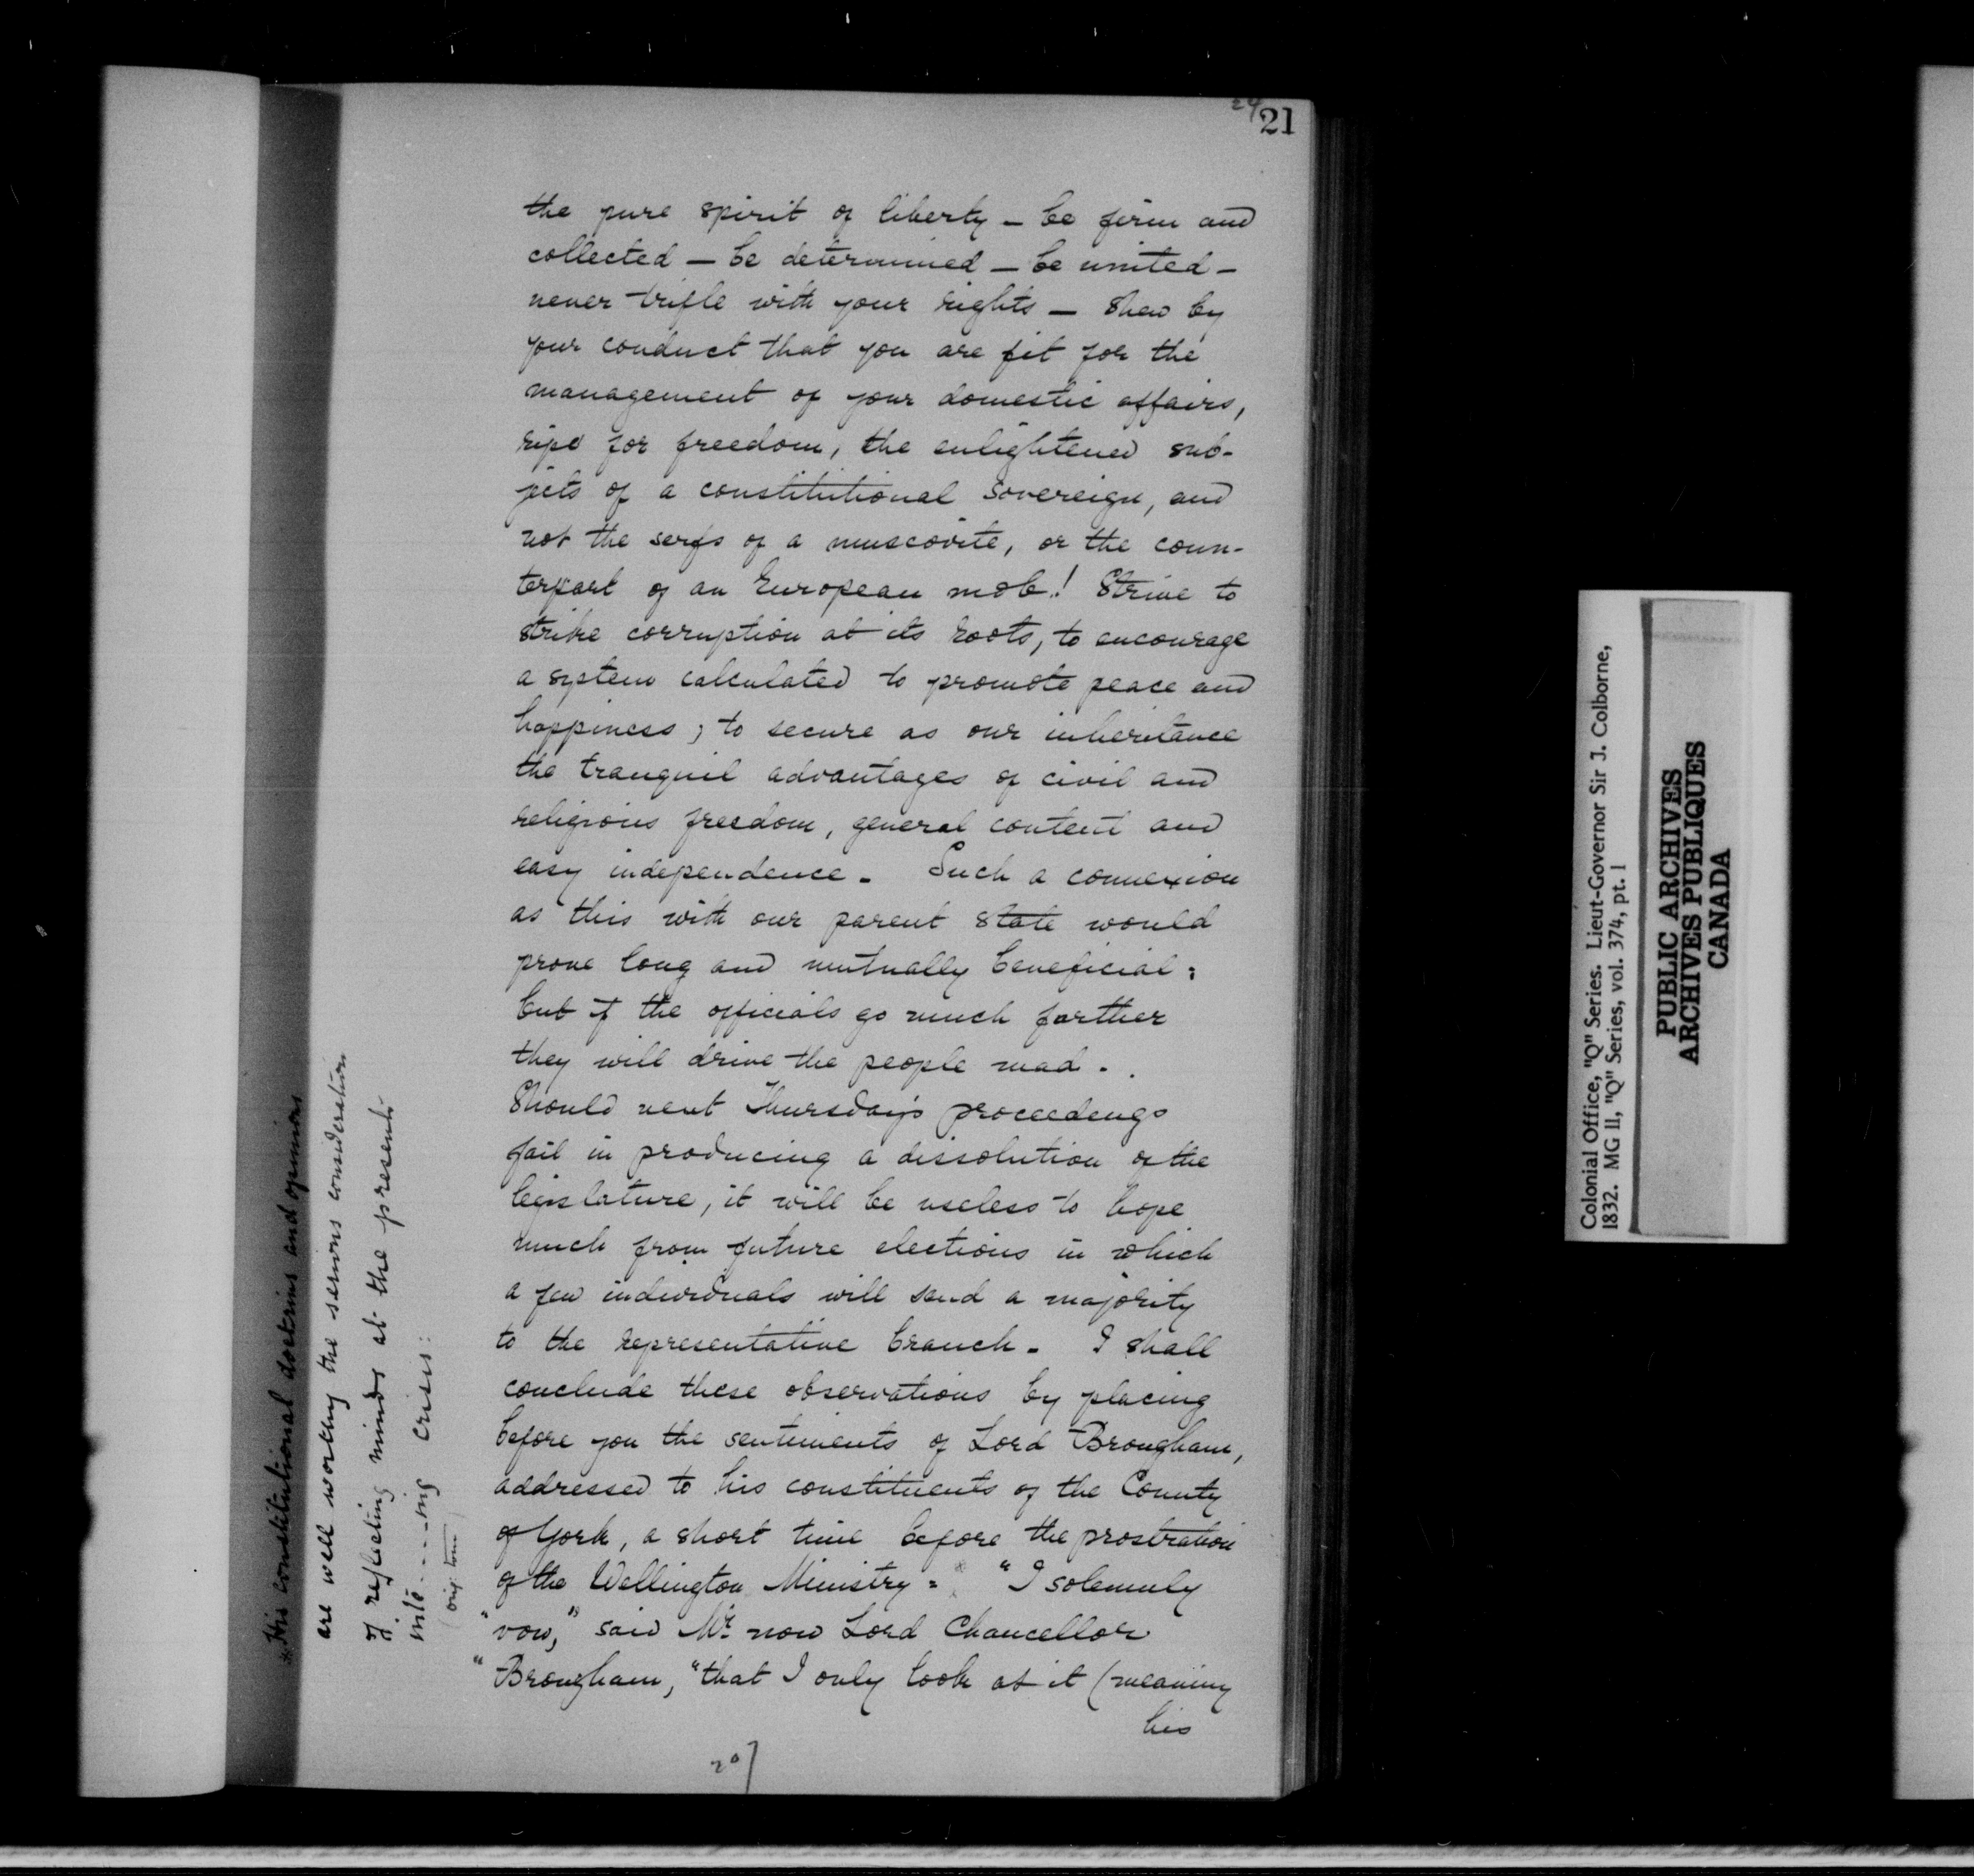 24/
21
the pure spirit of liberty – be firm and
collected – be determined – be united –
never trifle with your rights – Shew by
your conduct that you are fit for the
management of your domestic affairs,
ripe for freedom, the enlightened sub-
jets of a constitutional sovereign, and
not the serfs of a muscovite, or the coun-
terpart of an European mob! Strive to
strike corruption at its roots, to encourage
a system calculated to promote peace and
happiness; to secure as our inheritance
the tranquil advantages of civil and
religious freedom, general content and
easy independence. Such a connexion
as this with our parent state would
prove long and mutually beneficial:
but if the officials go much farther
they will drive the people mad.
Should next Thursday's proceedings
fail in producing a dissolution of the
legislature, it will be useless to hope
much from future elections in which
a few individuals will send a majority
to the representative branch. I shall
conclude these observations by placing
before you the sentiments of Lord Brougham,
addressed to his constituents of the County
of York, a short time before the prostration
of the Wellington Ministry = * "I solemnly
"vow," said Mr. now Lord Chancellor
"Brougham, "that I only look at it (meaning
his
207
* His constitutional doctrins and opinions
are well worthy the serious consideration
of reflecting minds at the present
inte----ing crisis:
(orig. torn)
Colonial Office, "Q" Series. Lieut-Governor Sir J. Colborne,
1832. MG 11, "Q" Series, vol. 374, pt. 1
PUBLIC ARCHIVES
ARCHIVES PUBLIQUES
CANADA